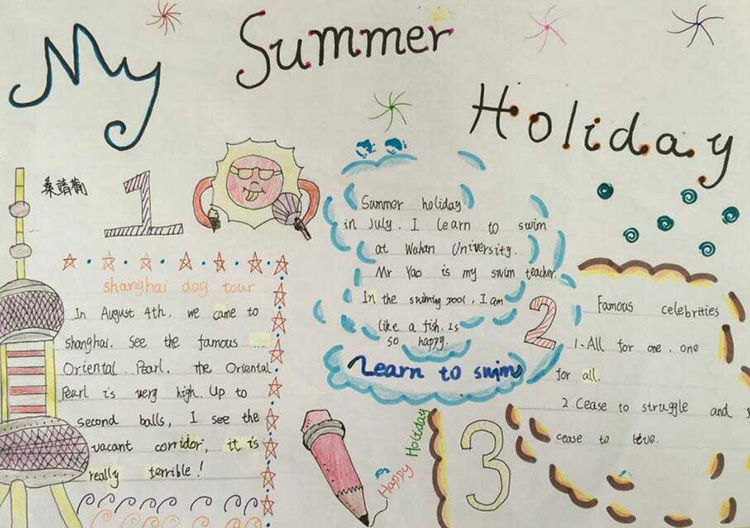 My Summer Holiday
1
shanghai day tour
In August 4th, we came to
shanghai. See the famous
Oriental Pearl. the Oriental
Pearl is very high. Up to
second balls, I see the
vacant corridor, it is
really terrible!
Summer holiday
in July. I learn to swim
at Wuhan University.
Mr Yao is my swim teacher.
In the swiming pool, I am
like a fish. Is
so happy.
Learn to swim
2
Happy Holiday
3
Famous celebrities
1. All for one, one
for all.
2. Cease to struggle and
cease to